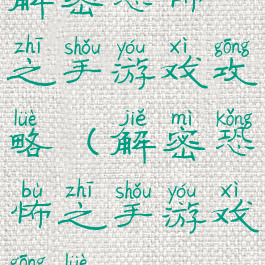 解密
zhī shǒu yóu xì gōng
之手游戏攻
lüè jiě mì kǒng
略（解密恐
bù zhī shǒu yóu xì
怖之手游戏
gōng lüè